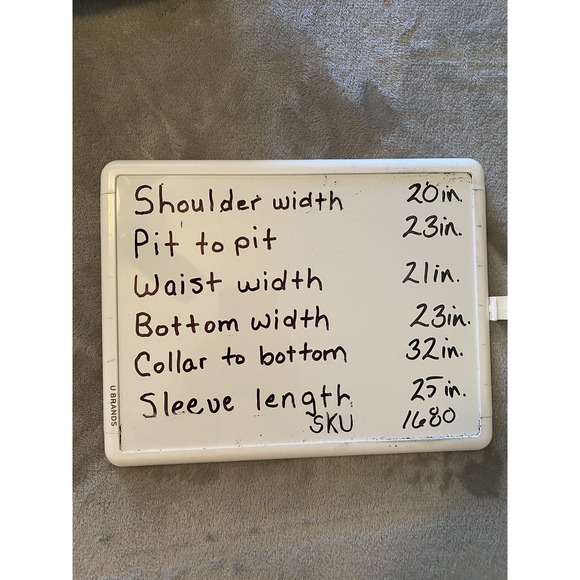 Shoulder width 20in.
Pit to pit 23in.
Waist width 21in.
Bottom width 23in.
Collar to bottom 32in.
Sleeve length 25in.
SKU 1680
U BRANDS